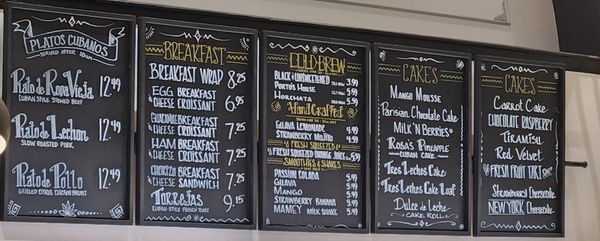 PLATOS CUBANOS
SERVED AFTER 10AM
Plato de Ropa Vieja 12.49
CUBAN STYLE SHREDDED BEEF
Plato de Lechon 12.49
SLOW ROASTED PORK
Plato de Pollo 12.49
GRILLED CITRUS CHICKEN BREAST
BREAKFAST
BREAKFAST WRAP 8.25
EGG BREAKFAST
& CHEESE CROISSANT 6.95
GUACAMOLE BREAKFAST
& CHEESE CROISSANT 7.25
HAM BREAKFAST
& CHEESE CROISSANT 7.25
CHORIZO BREAKFAST
& CHEESE SANDWICH 7.25
TORREJAS 9.15
CUBAN STYLE FRENCH TOAST
COLD BREW
BLACK & UNSWEETENED 3.99
PORTO'S HOUSE 5.49
HORCHATA 5.49
Hand Crafted
GUAVA LEMONADE
STRAWBERRY MOJITO
FRESH SQUEEZED
FRESH SQUEEZED ORANGE JUICE 5.39
SMOOTHIES & SHAKES
PASSION COLADA 5.49
GUAVA 5.49
MANGO 5.49
STRAWBERRY BANANA 5.49
MAMEY MILK SHAKE 5.49
CAKES
Mango Mousse
Parisian Chocolate Cake
MILK 'N BERRIES
Rosa's Pineapple
CUBAN CAKE
Tres Leches Cake
Tres Leches Cake Loaf
Dulce de Leche
CAKE ROLL
CAKES
Carrot Cake
CHOCOLATE RASPBERRY
TIRAMISU
Red Velvet
FRESH FRUIT TART
Strawberry Cheesecake
NEW YORK CHEESECAKE